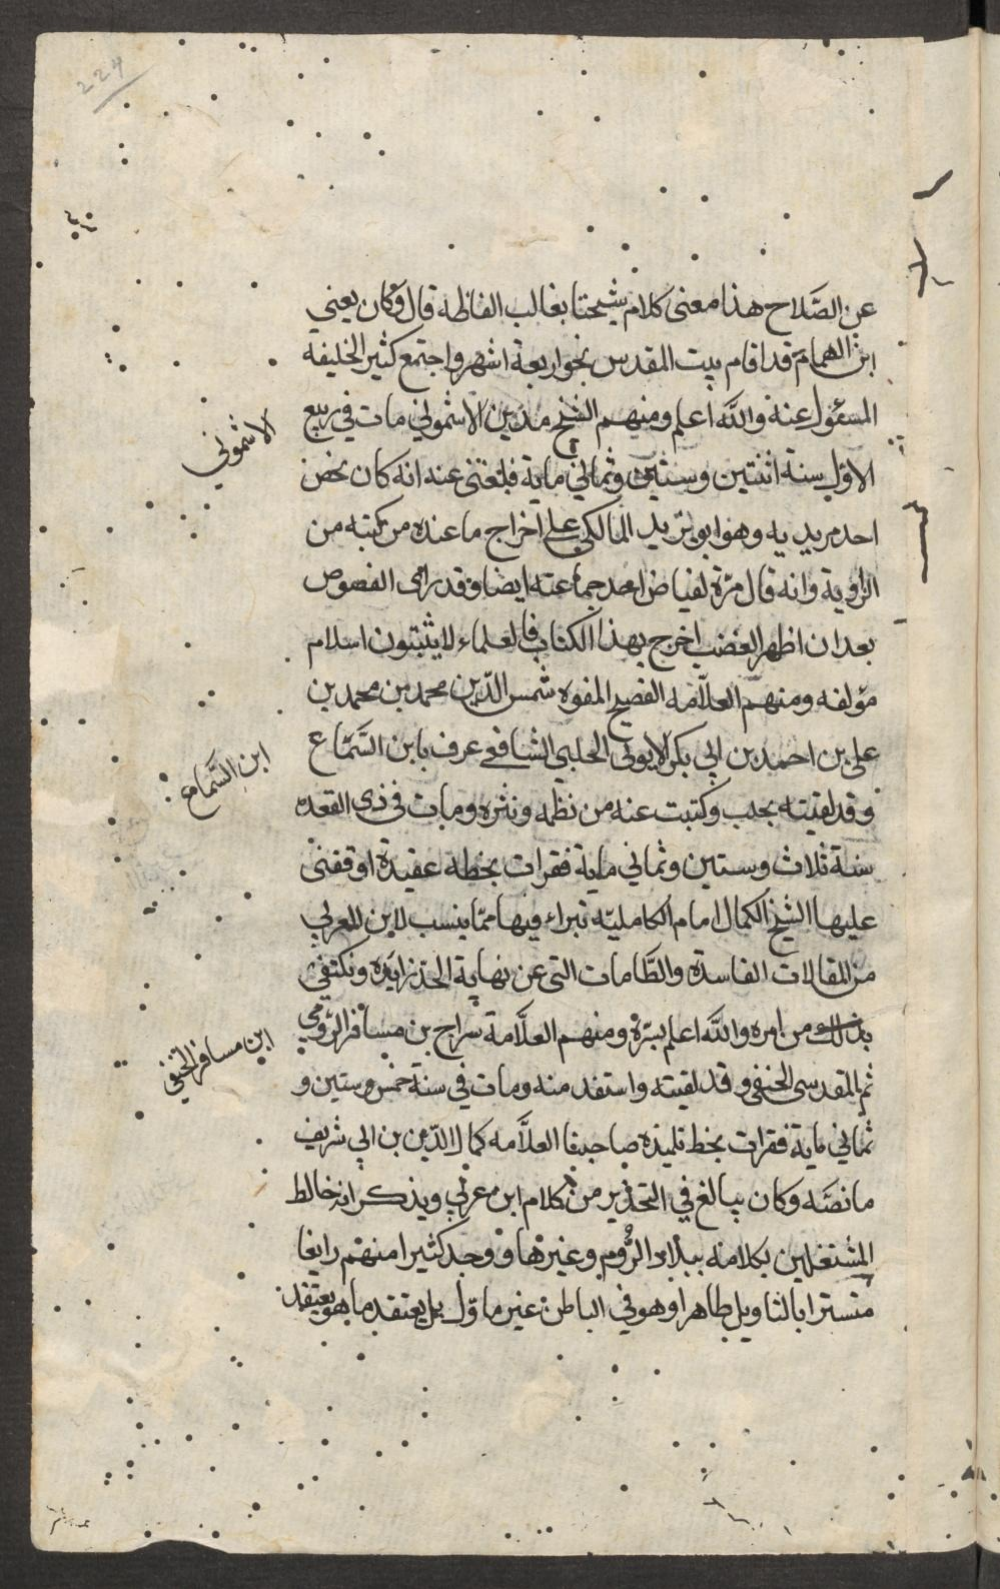 224
عن الصَّلاح هذا معنى كلام شيختا بغالب الفاظه قال وكان يعني
ابن الهمام قد اقام ببيت المقدس نحو اربعة اشهر واجتمع كثير الخليفه
المسؤل عنه والله اعلم ومنهم الشيخ مدين الاشموني مات في ربيع
الاشموني
الاول سنة اثنتين وستين وثماني ماية فبلغني عنه انه كان يحض
احد مريديه وهو ابو يزيد المالكي على اخراج ما عنده من كتبه من
الزاوية وانه قال مرة لفياض احد جماعته ايضا وقد راى الفصوص
بعد ان اظهر الغضب اخرج بهذا الكتاب فالعلماء لا يثبتون اسلام
مؤلفه ومنهم العلامه الفصيح المفوه شمس الدين محمد بن محمد بن
على بن احمد بن ابي بكر الايوبي الحلبي الشافعي عرف بابن السَّمَّاع
ابن السَّماع
وقد لقيته بحلب وكتبت عنه من نظمه ونثره ومات في ذي القعده
سنة ثلاث وستين وثماني ماية فقرات بخطه عقيدة اوقفني
عليها الشيخ الكمال امام الكامليّه تبراء فيها ممّا ينسب لابن العربي
من المقالات الفاسدة والطَّامات التي عن نهاية الحد زايده ونكتفي
بذلك من امره والله اعلم بسرّه ومنهم العلَّامة سراج بن مسافر الرومي
ابن مسافر الحنفي
ثم المقدسى الحنفي وقد لقيته واستفد منه ومات في سنة خمس وستين و
ثماني ماية فقرات بخط تلميذه صاحبنا العلَّامه كمال الدين بن ابي شريف
ما نصَّه وكان يبالغ في التحذير من كلام ابن عربي ويذكر انه خالط
المشتغلين بكلامه ببلاد الرُّوم وغيرها ووجد كثيرا منهم رايغا
متسترا بالتاويل طاهرا وهو في الباطن غير ماوّل بل يعتقد ما هو يعتقد